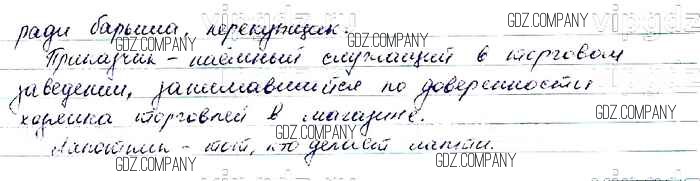 ради барыша, перекупщик.
Приказчик - наёмный служащий в торговом
заведении, занимавшийся по доверенности
хозяина торговлей в магазине.
- тот, кто делает лапти.
GDZ.COMPANY
GDZ.COMPANY
GDZ.COMPANY
GDZ.COMPANY
GDZ.COMPANY
GDZ.COMPANY
GDZ.COMPANY
GDZ.COMPANY
GDZ.COMPANY